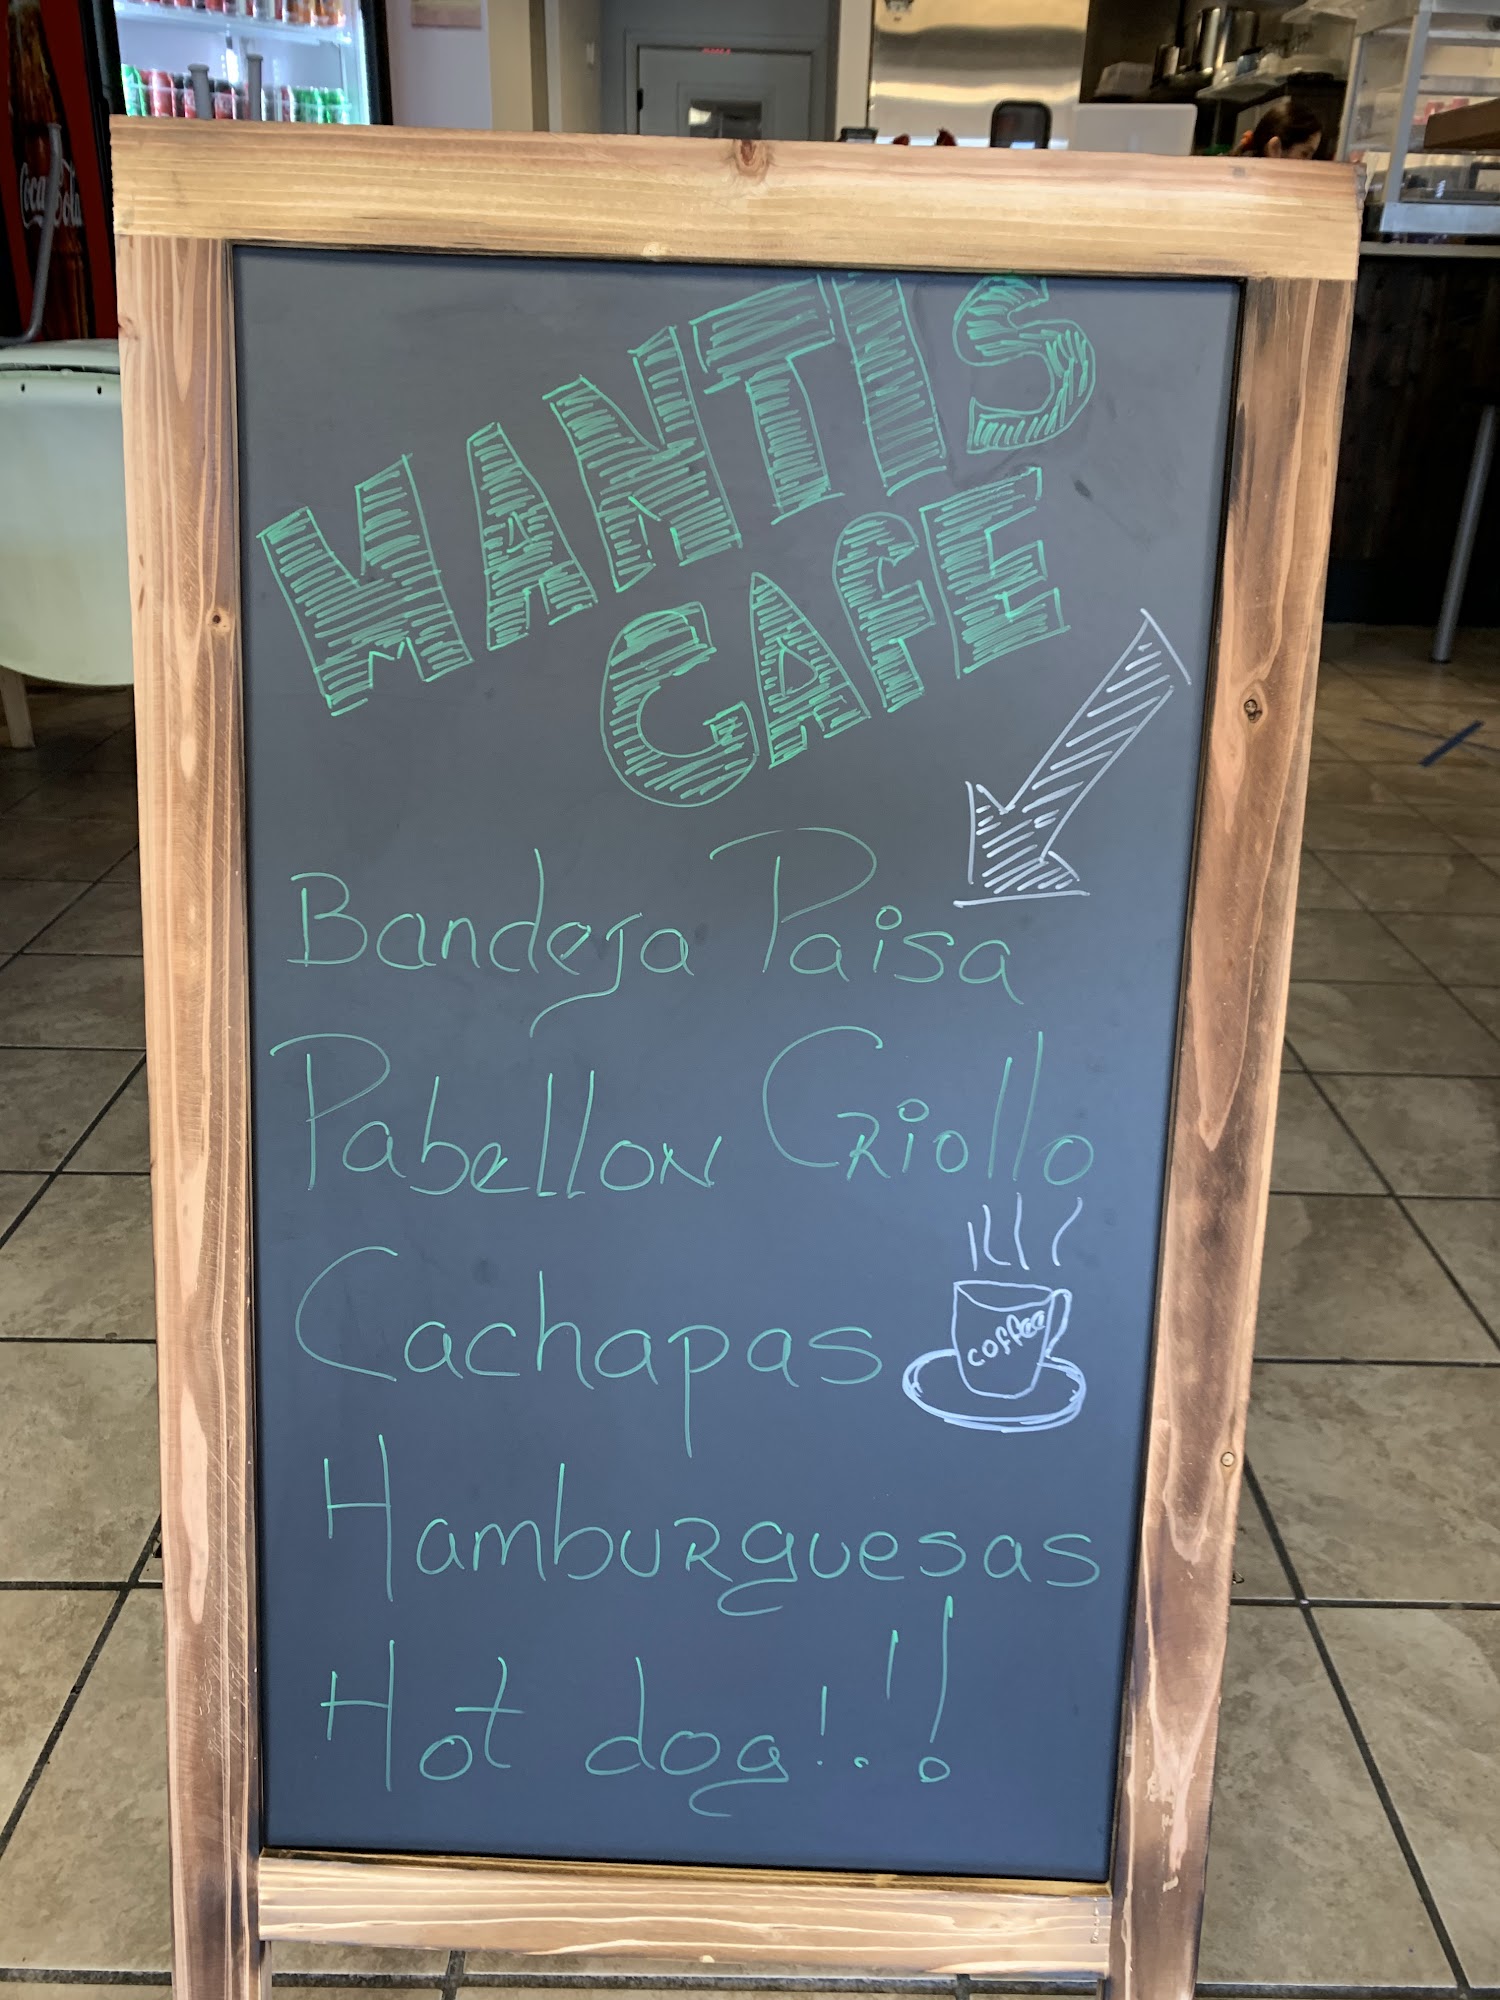 Coca-Cola
MANTIS
CAFE
Bandeja Paisa
Pabellon Criollo
Cachapas
coffee
Hamburguesas
Hot dog!!!